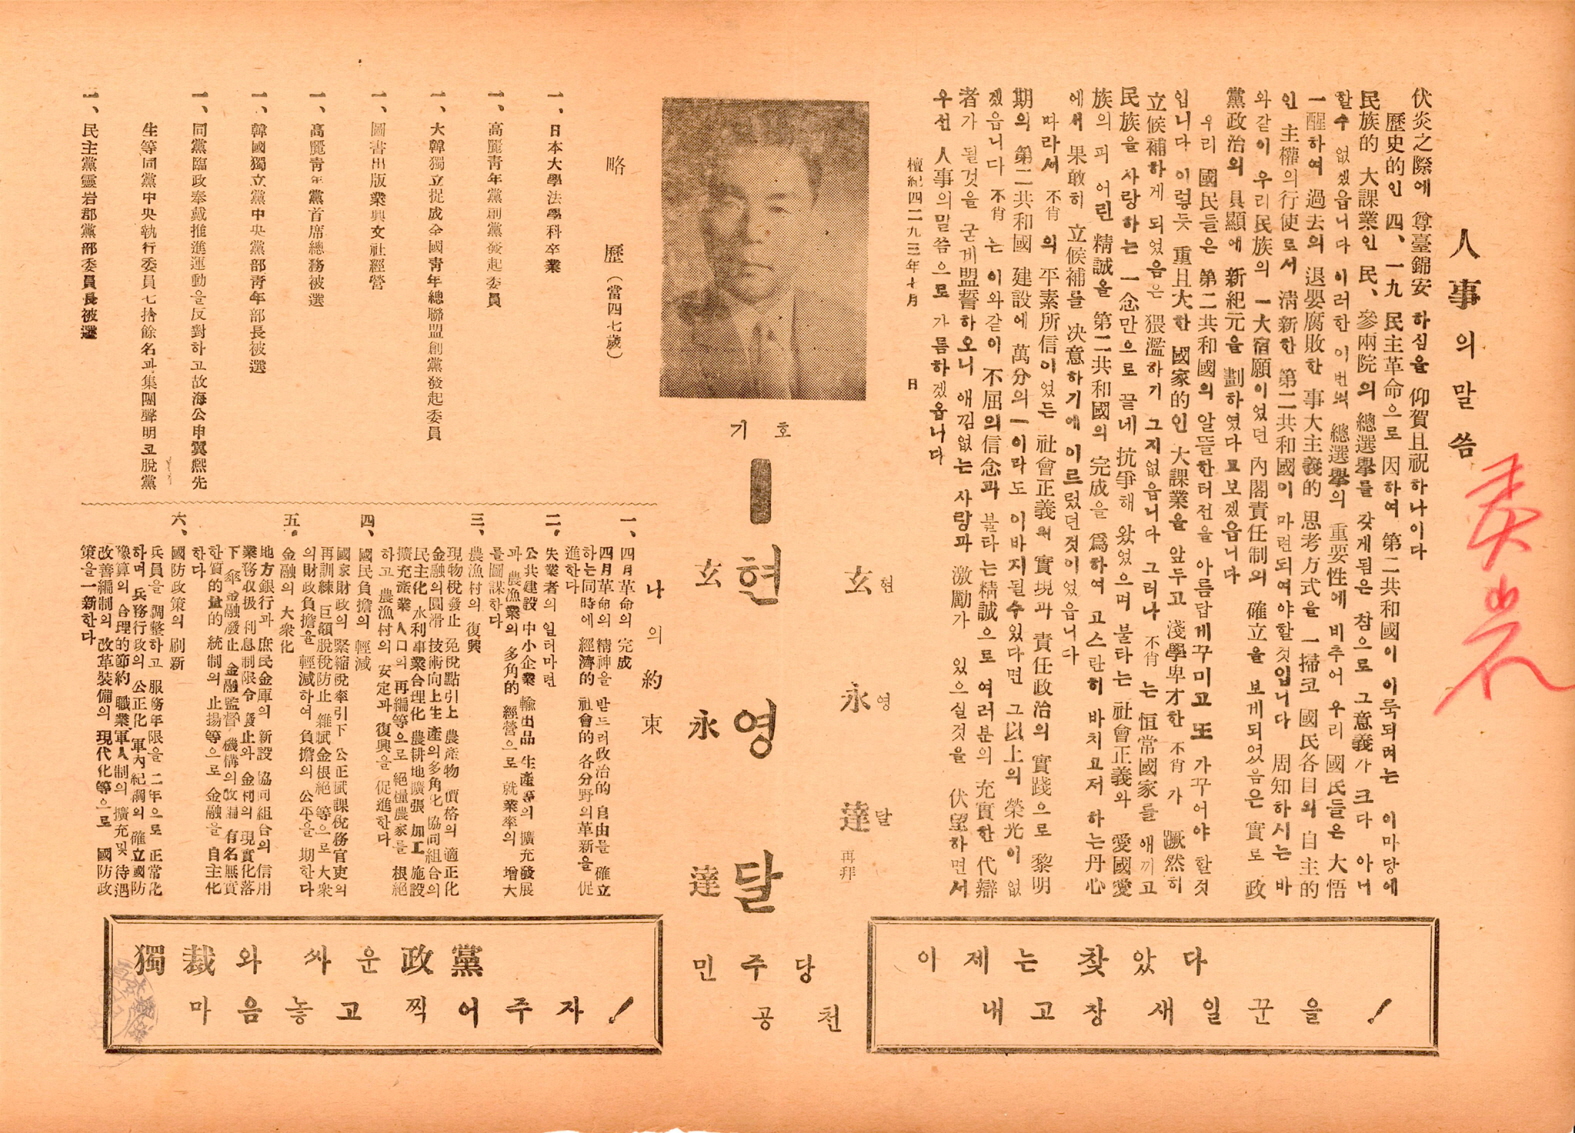 人事의 말씀
伏炎之際에 尊臺錦安 하심을 仰賀且祝하나이다
歷史的인 四、一九 民主革命으로 因하여 第二共和國이 이룩되려는 이마당에
民族的 大課業인 民、參兩院의 總選擧를 갖게됨은 참으로 그意義가 크다 아니
할수 없겠읍니다 이러한 이번의 總選擧의 重要性에 비추어 우리 國民들은 大悟
一醒하여 過去의 退嬰腐敗한 事大主義的 思考方式을 一掃코 國民各自의 自主的
인 主權의行使로서 淸新한 第二共和國이 마련되여야할것입니다 周知하시는 바
와같이 우리民族의 一大宿願이었던 內閣責任制의 確立을 보게되었음은 實로 政
黨政治의 具顯에 新紀元을 劃하였다고보겠읍니다
우리 國民들은 第二共和國의 알뜰한터전을 아름답게꾸미고 또 가꾸어야 할것
입니다 이렇듯 重且大한 國家的인 大課業을 앞두고 淺學卑才한 不肖가 蹶然히
立候補하게 되었음은 猥濫하기 그지없읍니다 그러나 不肖는 恒常國家를 애끼고
民族을 사랑하는 一念만으로 끝네 抗爭해 왔었으며 불타는 社會正義와 愛國愛
族의 피어린 精誠을 第二共和國의 完成을 爲하여 고스란히 바치고저 하는丹心
에서 果敢히 立候補를 決意하기에이르렀던것이었읍니다
따라서 不肖의 平素所信이었든 社會正義의 實現과 責任政治의 實踐으로 黎明
期의 第二共和國 建設에 萬分의一이라도 이바지될수있다면 그以上의 榮光이 없
겠읍니다 不肖는 이와같이 不屈의信念과 불타는精誠으로 여러분의 充實한 代辯
者가 될것을 굳게盟誓하오니 애낌없는 사랑과 激勵가 있으실것을 伏望하면서
우선 人事의말씀으로 가름하겠읍니다
檀紀四二九三年七月 日
玄현 永영 達달 再拜
기호
一
현영달
玄永達
민주당
공천
略歷 (當四七歲)
一、日本大學法學科卒業
一、高麗靑年黨創黨發起委員
一、大韓獨立促成全國靑年總聯盟創黨發起委員
一、圖書出版業興文社經營
一、高麗靑年黨首席總務被選
一、韓國獨立黨中央黨部靑年部長被選
一、同黨臨政奉戴推進運動을反對하고故海公申翼熙先
生等同黨中央執行委員七拾餘名과集團聲明코脫黨
一、民主黨靈岩郡黨部委員長被選
나의 約束
一、四月革命의 完成
四月革命의 精神을 받드러政治的 自由를 確立
하는同時에 經濟的 社會的 各分野의革新을 促
進한다
二、失業者의 일터마련
公共建設 中小企業 輸出品 生產等의 擴充發展
과 農漁業의 多角的 經營으로 就業率의 增大
를圖謀한다
三、農漁村의 復興
現物稅發止 免稅點引上 農產物 價格의 適正化
金融의圓滑 技術向上 生產의多角化 協同組合의
民主化 水利事業合理化 農耕地擴張 加工 施設
擴充產業 人口의 再編等으로 絕糧農家를 根絕
하고 農漁村의 安定과 復興을 促進한다
四、國民負擔의 輕減
國家財政의 緊縮 稅率引下 公正賦課 稅務官吏의
再訓練 巨額脫稅防止 雜賦金根絕 等으로 大衆
의財政負擔을 輕減하여 負擔의 公平을 期한다
五、金融의 大衆化
地方銀行과 庶民金庫의 新設 協同組合의 信用
業務取扱 利息制限令 發止와 金利의 現實化
下 金融發止 金融監督 機構의改編 有名無實
한質的量的 統制의 止揚等으로 金融을 自主化
한다
六、國防政策의 刷新
兵員을 調整하고 服務年限을 二年으로 正常化
하며 兵務行政의 公正化 軍內紀綱의 確立國防
豫算의 合理的節約 職業軍人制의 擴充및 待遇
改善編制의 改革裝備의 現代化等으로 國防政
策을一新한다
이제는 찾았다
내고장 새일꾼을!
獨裁와 싸운政黨
마음놓고 찍어주자!